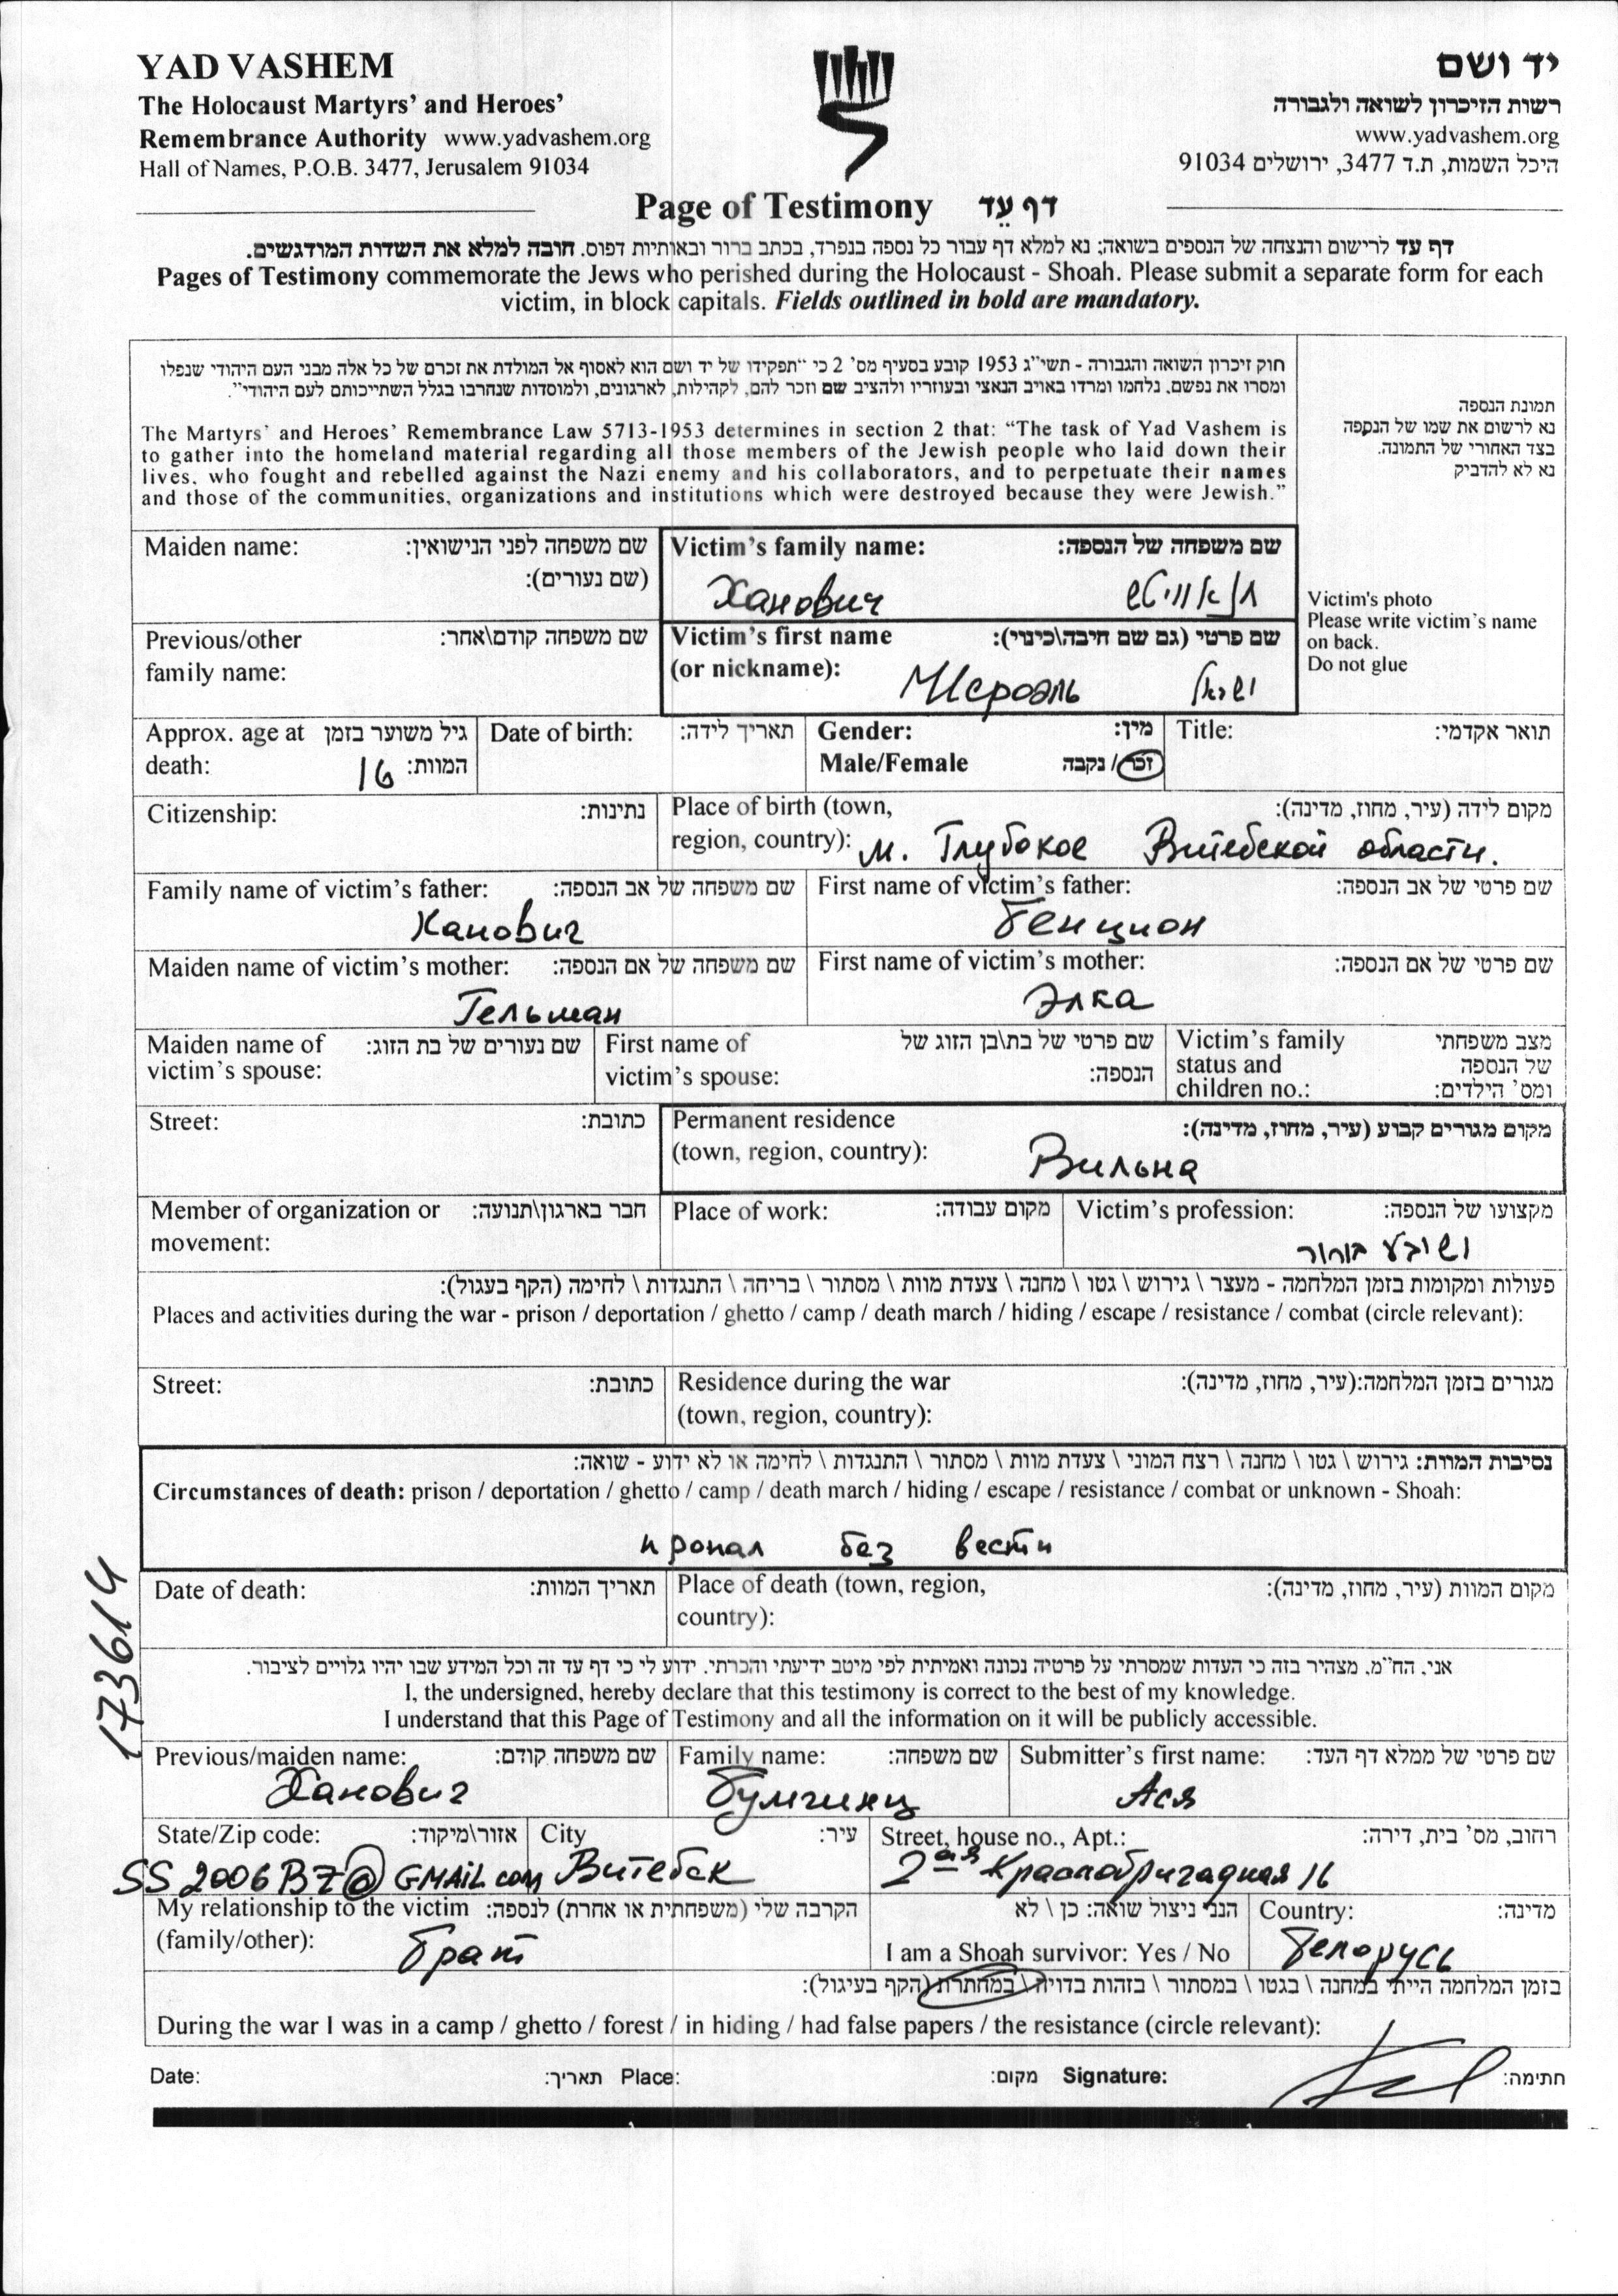 YAD VASHEM
The Holocaust Martyrs' and Heroes'
Remembrance Authority www.yadvashem.org
Hall of Names, P.O.B. 3477, Jerusalem 91034
יד ושם
רשות הזיכרון לשואה ולגבורה
www.yadvashem.org
היכל השמות, ת.ד 3477, ירושלים 91034
Page of Testimony דף עֵד
דף עד לרישום והנצחה של הנספים בשואה; נא למלא דף עבור כל נספה בנפרד, בכתב ברור ובאותיות דפוס. חובה למלא את השדות המודגשים.
Pages of Testimony commemorate the Jews who perished during the Holocaust - Shoah. Please submit a separate form for each
victim, in block capitals. Fields outlined in bold are mandatory.
חוק זיכרון השואה והגבורה - תשי"ג 1953 קובע בסעיף מס' 2 כי "תפקידו של יד ושם הוא לאסוף אל המולדת את זכרם של כל אלה מבני העם היהודי שנפלו
ומסרו את נפשם, נלחמו ומרדו באויב הנאצי ובעוזריו ולהציב שם וזכר להם, לקהילות, לארגונים, ולמוסדות שנחרבו בגלל השתייכותם לעם היהודי".
The Martyrs' and Heroes' Remembrance Law 5713-1953 determines in section 2 that: "The task of Yad Vashem is
to gather into the homeland material regarding all those members of the Jewish people who laid down their
lives, who fought and rebelled against the Nazi enemy and his collaborators, and to perpetuate their names
and those of the communities, organizations and institutions which were destroyed because they were Jewish."
תמונת הנספה
נא לרשום את שמו של הנספה
בצד האחורי של התמונה.
נא לא להדביק
Victim's photo
Please write victim's name
on back.
Do not glue
Maiden name: שם משפחה לפני הנישואין:
(שם נעורים):
Victim's family name: שם משפחה של הנספה:
Ханович חנאוויטש
Previous/other שם משפחה קודם\אחר:
family name:
Victim's first name שם פרטי (גם שם חיבה\כינוי):
(or nickname): Исроэль ישראל
Approx. age at גיל משוער בזמן
death: המוות: 16
Date of birth: תאריך לידה:
Gender: מין:
Male/Female זכר / נקבה
Title: תואר אקדמי:
Citizenship: נתינות:
Place of birth (town, מקום לידה (עיר, מחוז, מדינה):
region, country): м. Глубокое Витебской области.
Family name of victim's father: שם משפחה של אב הנספה:
Ханович
First name of victim's father: שם פרטי של אב הנספה:
Бенцион
Maiden name of victim's mother: שם משפחה של אם הנספה:
Гельман
First name of victim's mother: שם פרטי של אם הנספה:
Элка
Maiden name of שם נעורים של בת הזוג:
victim's spouse:
First name of שם פרטי של בת\בן הזוג של
victim's spouse: הנספה:
Victim's family מצב משפחתי
status and של הנספה
children no.: ומס' הילדים:
Street: כתובת:
Permanent residence מקום מגורים קבוע (עיר, מחוז, מדינה):
(town, region, country): Вильна
Member of organization or חבר בארגון\תנועה:
movement:
Place of work: מקום עבודה:
Victim's profession: מקצועו של הנספה:
בחור
פעולות ומקומות בזמן המלחמה - מעצר \ גירוש \ גטו \ מחנה \ צעדת מוות \ מסתור \ בריחה \ התנגדות \ לחימה (הקף בעגול):
Places and activities during the war - prison / deportation / ghetto / camp / death march / hiding / escape / resistance / combat (circle relevant):
Street: כתובת:
Residence during the war מגורים בזמן המלחמה:(עיר, מחוז, מדינה):
(town, region, country):
נסיבות המוות: גירוש \ גטו \ מחנה \ רצח המוני \ צעדת מוות \ מסתור \ התנגדות \ לחימה או לא ידוע - שואה:
Circumstances of death: prison / deportation / ghetto / camp / death march / hiding / escape / resistance / combat or unknown - Shoah:
пропал без вести
Date of death: תאריך המוות:
Place of death (town, region, מקום המוות (עיר, מחוז, מדינה):
country):
173614
אני, הח"מ, מצהיר בזה כי העדות שמסרתי על פרטיה נכונה ואמיתית לפי מיטב ידיעתי והכרתי. ידוע לי כי דף עד זה וכל המידע שבו יהיו גלויים לציבור.
I, the undersigned, hereby declare that this testimony is correct to the best of my knowledge.
I understand that this Page of Testimony and all the information on it will be publicly accessible.
Previous/maiden name: שם משפחה קודם:
Ханович
Family name: שם משפחה:
Бумгинц
Submitter's first name: שם פרטי של ממלא דף העד:
Ася
State/Zip code: אזור\מיקוד:
SS2006BZ@GMAIL com
City עיר:
Витебск
Street, house no., Apt.: רחוב, מס' בית, דירה:
2ая Краснобригадная 16
My relationship to the victim הקרבה שלי (משפחתית או אחרת) לנספה:
(family/other): брат
הנני ניצול שואה: כן \ לא
I am a Shoah survivor: Yes / No
Country: מדינה:
Белорусь
בזמן המלחמה הייתי במחנה \ בגטו \ במסתור \ בזהות בדויה \ במחתרת (הקף בעיגול):
During the war I was in a camp / ghetto / forest / in hiding / had false papers / the resistance (circle relevant):
Date: תאריך: Place: מקום: Signature: חתימה: